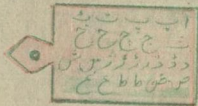 ا ب پ ت ٹ
ث ج چ ح خ
د ڈ ذ ر ڑ ز ژ س ش
ص ض ط ظ ع غ